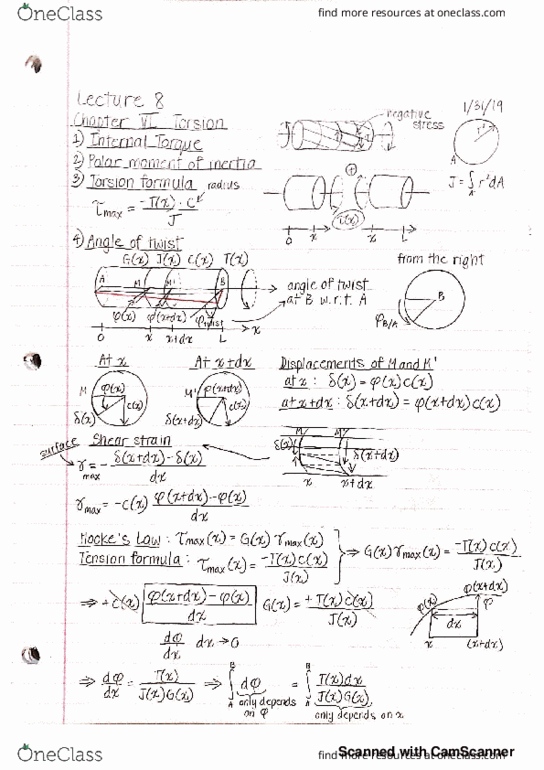 OneClass
find more resources at oneclass.com
Lecture 8
1/31/19
Chapter VI Torsion
negative stress
1) Internal Torque
2) Polar moment of inertia
3) Torsion formula radius
τmax = -T(x)·c / J
J = ∫A r²dA
r
A
T(x)
0 x x L
4) Angle of twist
G(x) J(x) C(x) T(x)
from the right
A M M' B
angle of twist at B w.r.t. A
B
φB/A
φ(x) φ(x+dx) φtwist
0 x x+dx L x
At x
At x+dx
Displacements of M and M'
M φ(x) c(x) δ(x)
M' φ(x+dx) c(x) δ(x+dx)
at x : δ(x) = φ(x)c(x)
at x+dx : δ(x+dx) = φ(x+dx)c(x)
surface Shear strain
γmax = - δ(x+dx)-δ(x) / dx
M M' δ(x) δ(x+dx)
x x+dx
γmax = -c(x) φ(x+dx)-φ(x) / dx
Hooke's Law : τmax(x) = G(x) γmax(x)
Tension formula : τmax(x) = -T(x)c(x) / J(x)
⇒ G(x)γmax(x) = -T(x)c(x) / J(x)
⇒ +c(x) φ(x+dx)-φ(x) / dx G(x) = +T(x)c(x) / J(x)
φ(x) φ(x+dx) φ
dx
x (x+dx)
dφ / dx dx→0
⇒ dφ/dx = T(x) / J(x)G(x) ⇒ ∫A^B dφ = ∫A^B T(x)dx / J(x)G(x)
only depends on φ
only depends on x
OneClass
find more resources at oneclass.com
Scanned with CamScanner